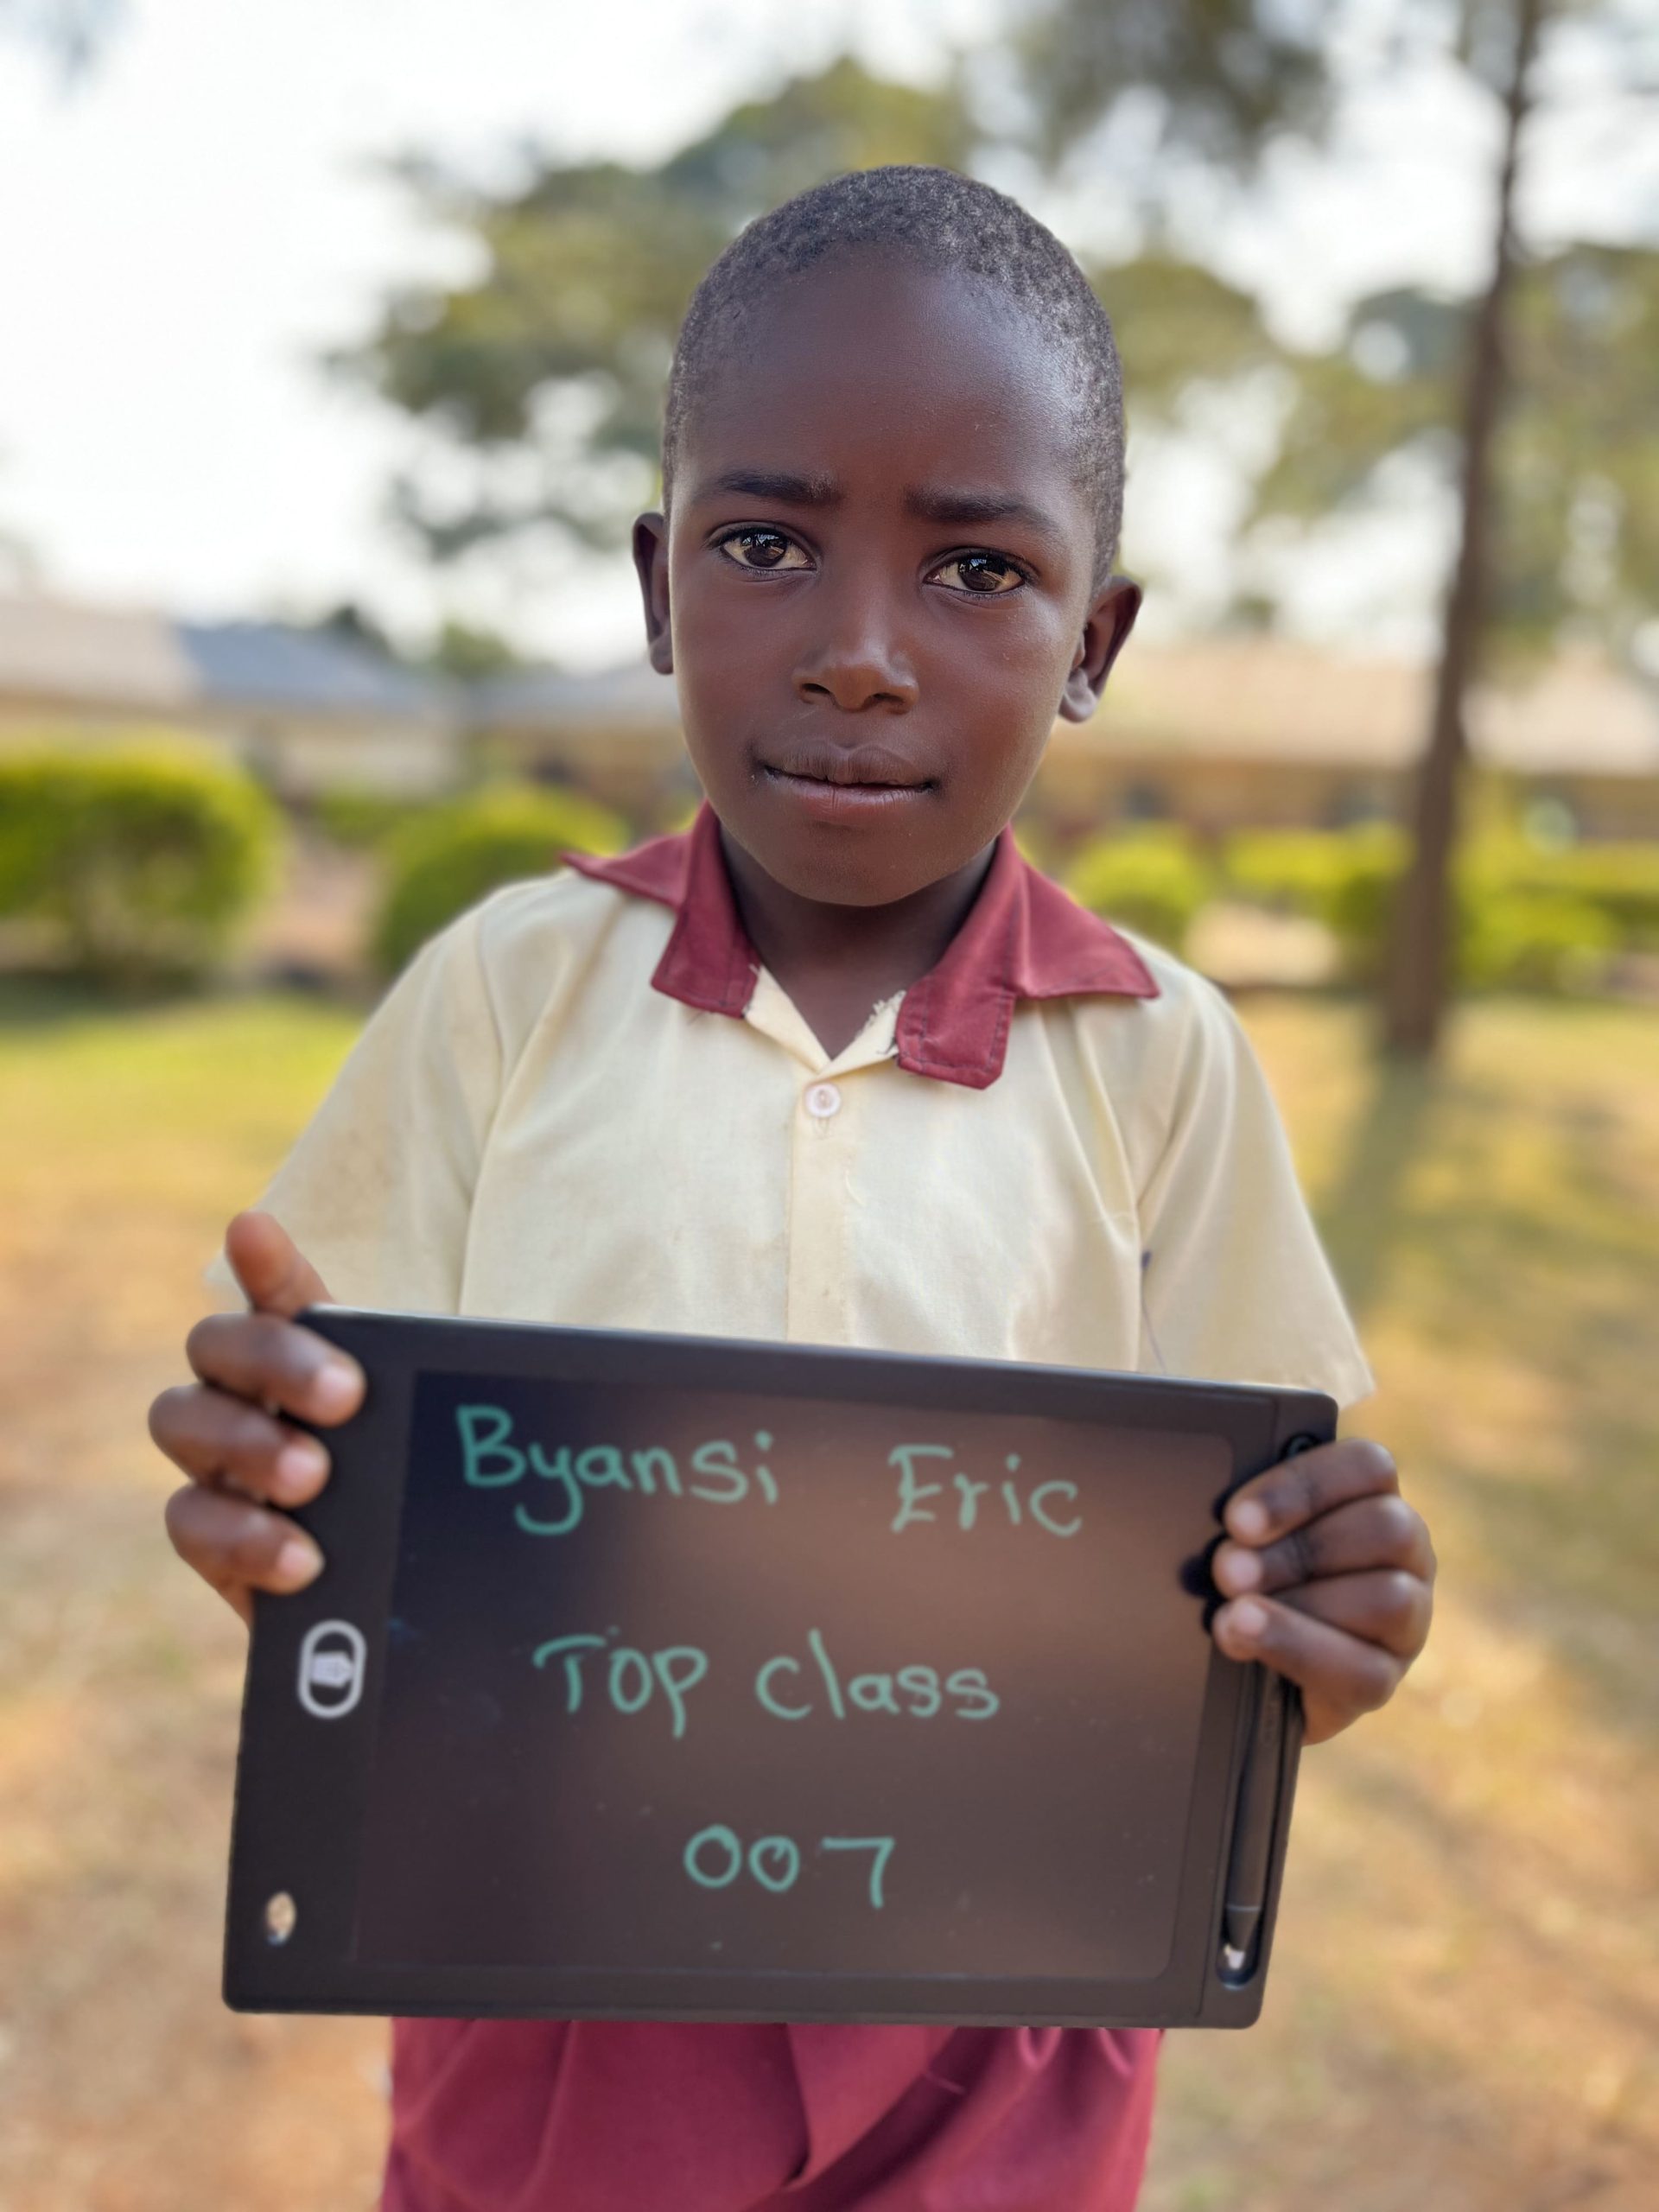 Byansi Eric
Top class
007